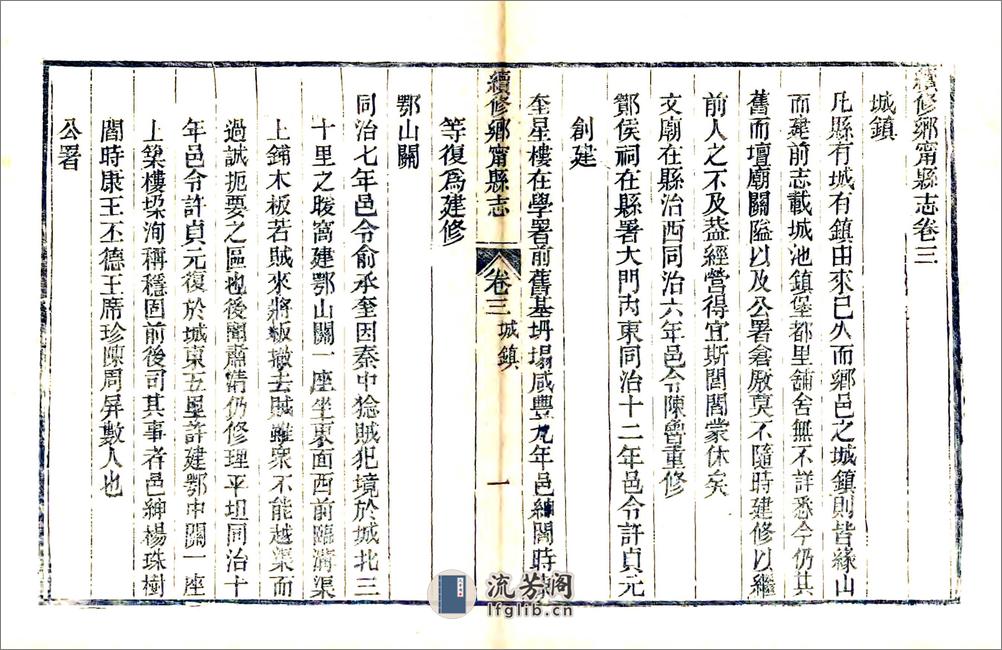 續修鄉甯縣志卷三
城鎮
凡縣有城有鎮由來已久而鄉邑之城鎮則皆緣山
而建前志載城池鎮堡都里舖舍無不詳悉今仍其
舊而壇廟關隘以及公署倉廒莫不隨時建修以繼
前人之不及葢經營得宜斯閭閻蒙休矣
文廟在縣治西同治六年邑令陳曾重修
酇侯祠在縣署大門內東同治十二年邑令許貞元
創建
奎星樓在學署前舊基坍塌咸豐九年邑紳閻時
續修鄉甯縣志
卷三
城鎮
一
等復爲建修
鄂山關
同治七年邑令俞承奎因秦中捻賊犯境於城北三
十里之晙窩建鄂山關一座坐東面西前臨溝渠
上鋪木板若賊來將板撤去賊雖衆不能越渠而
過誠扼要之區也後聞肅清仍修理平坦同治十
年邑令許貞元復於城東五里許建鄂中關一座
上築樓垜洵稱穩固前後司其事者邑紳楊珠樹
閻時康王丕德王席珍陳周屏數人也
公署
流芳閣
lfglib.cn